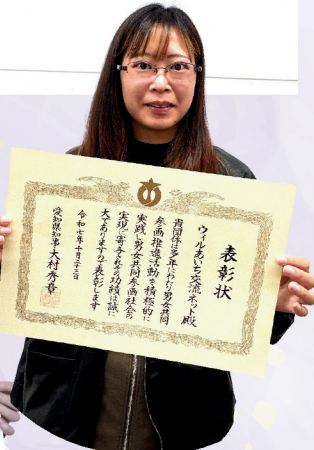 表彰状
ウィルあいち交流ネット殿
貴団体は多年にわたり男女共同
参画推進活動を積極的に
実践し男女共同参画社会の
実現に寄与されその功績は誠に
大でありますので表彰します
令和七年十月二十三日
愛知県知事 大村秀章